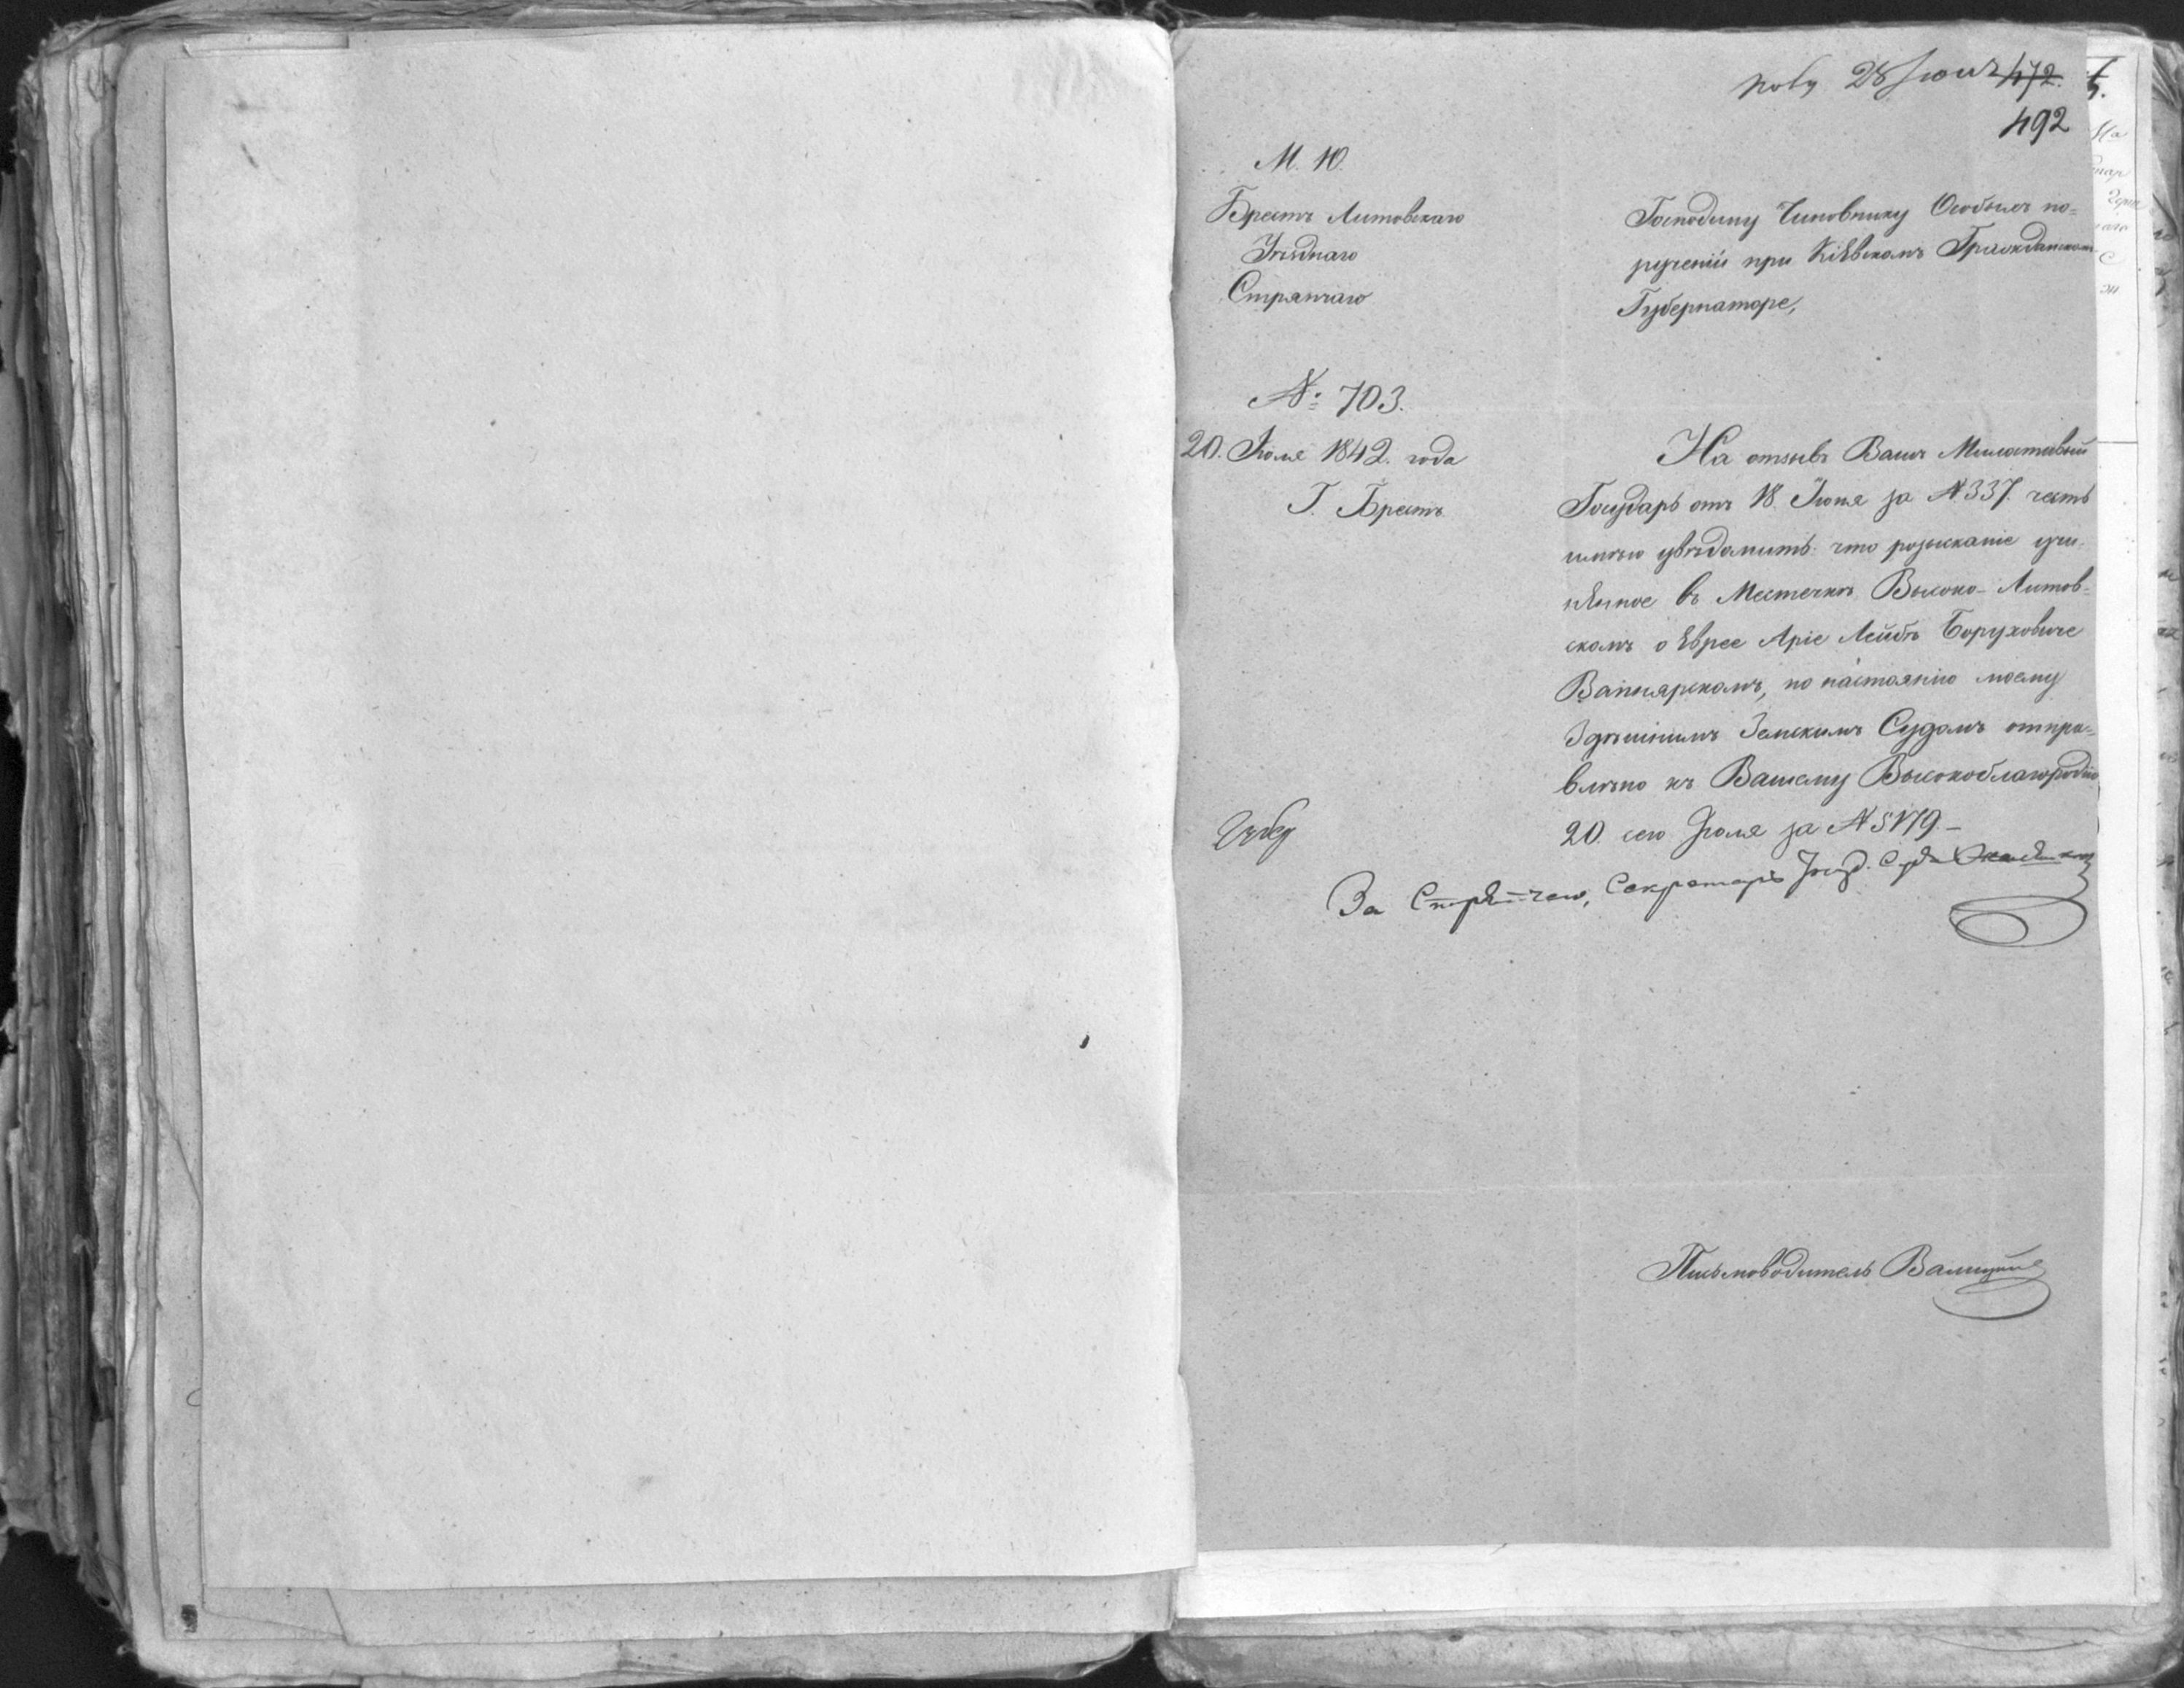 28 Іюля 472.
492
М. Ю.
Брестъ Литовскаго
Уѣзднаго
Стряпчаго
№ 703.
20. Іюля 1842. года
Г. Брестъ
Господину Чиновнику Особыхъ по=
рученій при Кіевскомъ Гражданскомъ
Губернаторе,
На отзывъ Вашъ Милостивый
Государь отъ 18 Іюня за № 337. честь
имѣю увѣдомить что розысканіе учи-
нѣнное въ Местечкѣ Высоко-Литов=
скомъ о Еврее Аріе Лейбѣ Боруховиче
Вапнярскомъ, по настоянію моему
Здѣшнимъ Земскимъ Судомъ отпра=
влѣно къ Вашему Высокоблагородію
20. сего Іюля за № 5179.-
За Стряпчаго, Секретарь Уѣзд. Суда
Письмоводитель